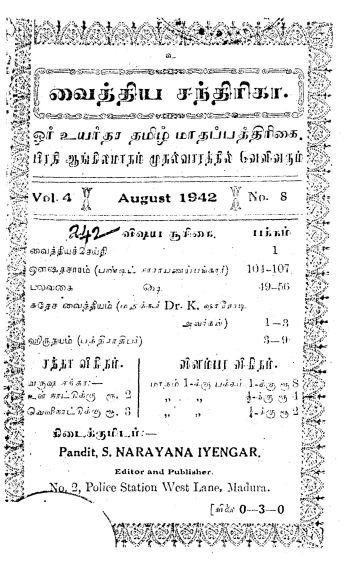 உ
வைத்திய சந்திரிகா.
ஓர் உயர்தர தமிழ் மாதப்பத்திரிகை.
பிரதி ஆங்கிலமாதம் முதல்வாரத்தில் வெளிவரும்
Vol. 4 August 1942 No. 8
242 விஷய சூசிகை. பக்கம்
வைத்தியச்செய்தி 1
ஔஷதசாரம் (பண்டிட் நாராயணய்யங்கார்) 104-107
பலவகை ஷெ 49-56
சுதேச வைத்தியம் Dr. K.
அவர்கள்) 1-3
ஹிருதயம் (பத்திராதிபர்) 3-9
சந்தா விகிதம். விளம்பர விகிதம்.
வருஷ சந்தா:— மாதம் 1-க்கு பக்கம் 1-க்கு ரூ 8
உள் நாட்டுக்கு ரூ. 2 " " ½-க்கு ரூ 4
வெளிநாட்டுக்கு ரூ. 3 " " ¼-க்கு ரூ 2
கிடைக்குமிடம்:—
Pandit, S. NARAYANA IYENGAR,
Editor and Publisher.
No. 2, Police Station West Lane, Madura.
[விலை 0-3-0